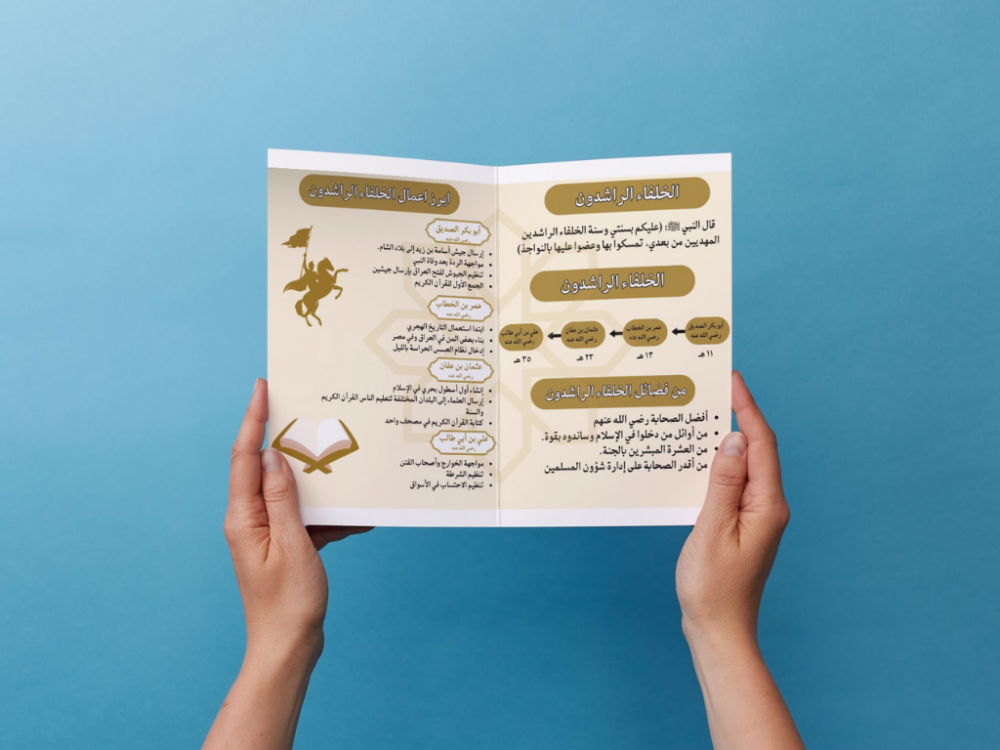 الخلفاء الراشدون
قال النبي ﷺ: (عليكم بسنتي وسنة الخلفاء الراشدين
المهديين من بعدي، تمسكوا بها وعضوا عليها بالنواجذ)
الخلفاء الراشدون
أبو بكر الصديق
رضي الله عنه
١١ هـ
عمر بن الخطاب
رضي الله عنه
١٣ هـ
عثمان بن عفان
رضي الله عنه
٢٣ هـ
علي بن أبي طالب
رضي الله عنه
٣٥ هـ
من فضائل الخلفاء الراشدون
• أفضل الصحابة رضي الله عنهم
• من أوائل من دخلوا في الإسلام وساندوه بقوة.
• من العشرة المبشرين بالجنة.
من أقدر الصحابة على إدارة شؤون المسلمين
ابرز اعمال الخلفاء الراشدون
أبو بكر الصديق
رضي الله عنه
• إرسال جيش أسامة بن زيد إلى بلاد الشام.
• مواجهة الردة بعد وفاة النبي
• تنظيم الجيوش لفتح العراق بإرسال جيشين
• الجمع الأول للقرآن الكريم
عمر بن الخطاب
رضي الله عنه
• ابتدا استعمال التاريخ الهجري
• بناء بعض المن في العراق وفي مصر
• إدخال نظام العسس الحراسة بالليل
عثمان بن عفان
رضي الله عنه
• إنشاء أول أسطول بحري في الإسلام
• إرسال العلماء إلى البلدان المختلفة لتعليم الناس القرآن الكريم
والسنة
• كتابة القرآن الكريم في مصحف واحد
علي بن أبي طالب
رضي الله عنه
• مواجهة الخوارج وأصحاب الفتن
• تنظيم الشرطة
• تنظيم الاحتساب في الأسواق